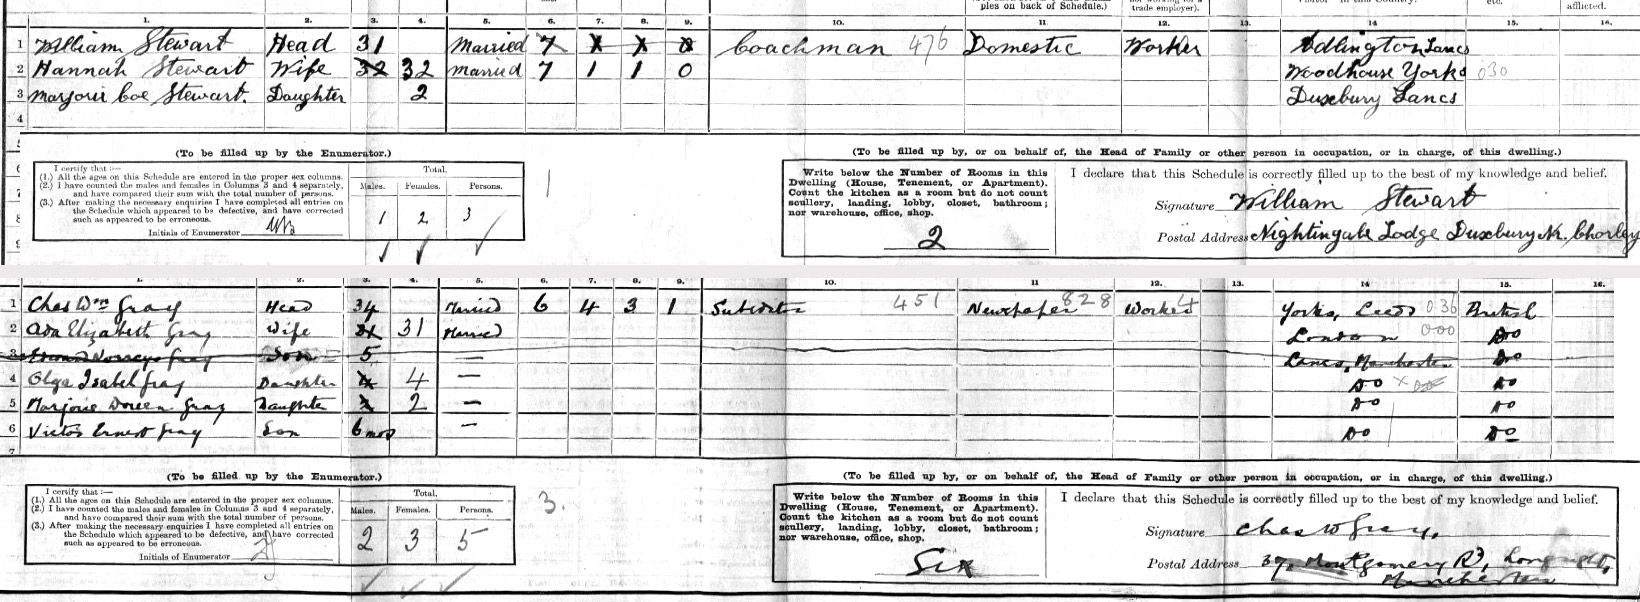 ples on back of Schedule.)
trade employer).
etc.
afflicted.
1. 2. 3. 4. 5. 6. 7. 8. 9. 10. 11. 12. 13. 14 15. 16.
1 William Stewart Head 31 Married 7 1 1 0 Coachman 476 Domestic Worker Adlington Lancs
2 Hannah Stewart Wife 32 32 Married 7 1 1 0 Woodhouse Yorks 030
3 Marjorie Coe Stewart. Daughter 2 Duxbury Lancs
4
5
(To be filled up by the Enumerator.)
(To be filled up by, or on behalf of, the Head of Family or other person in occupation, or in charge, of this dwelling.)
I certify that :—
(1.) All the ages on this Schedule are entered in the proper sex columns.
(2.) I have counted the males and females in Columns 3 and 4 separately, and have compared their sum with the total number of persons.
(3.) After making the necessary enquiries I have completed all entries on the Schedule which appeared to be defective, and have corrected such as appeared to be erroneous.
Initials of Enumerator
Total.
Males. Females. Persons.
1 2 3
1
Write below the Number of Rooms in this
Dwelling (House, Tenement, or Apartment).
Count the kitchen as a room but do not count
scullery, landing, lobby, closet, bathroom;
nor warehouse, office, shop.
2
I declare that this Schedule is correctly filled up to the best of my knowledge and belief.
Signature William Stewart
Postal Address Nightingale Lodge Duxbury Nr. Chorley
1. 2. 3. 4. 5. 6. 7. 8. 9. 10. 11 12. 13. 14 15. 16.
1 Chas Wm Gray Head 34 Married 6 4 3 1 Subeditor 451 Newspaper 828 Worker 4 Yorks, Leeds 036 British
2 Ada Elizabeth Gray Wife 31 Married London 000 Do
3 Gray Son 5 — Lancs, Manchester Do
4 Olga Isabel Gray Daughter 4 — Do Do
5 Marjorie Doreen Gray Daughter 2 — Do Do
6 Victor Ernest Gray Son 6 mos — Do Do
7
(To be filled up by the Enumerator.)
(To be filled up by, or on behalf of, the Head of Family or other person in occupation, or in charge, of this dwelling.)
I certify that :—
(1.) All the ages on this Schedule are entered in the proper sex columns.
(2.) I have counted the males and females in Columns 3 and 4 separately, and have compared their sum with the total number of persons.
(3.) After making the necessary enquiries I have completed all entries on the Schedule which appeared to be defective, and have corrected such as appeared to be erroneous.
Initials of Enumerator
Total.
Males. Females. Persons.
2 3 5
3.
Write below the Number of Rooms in this
Dwelling (House, Tenement, or Apartment).
Count the kitchen as a room but do not count
scullery, landing, lobby, closet, bathroom;
nor warehouse, office, shop.
Six
I declare that this Schedule is correctly filled up to the best of my knowledge and belief.
Signature Chas W Gray.
Postal Address 37, Montgomery Rd, Longsight,
Manchester